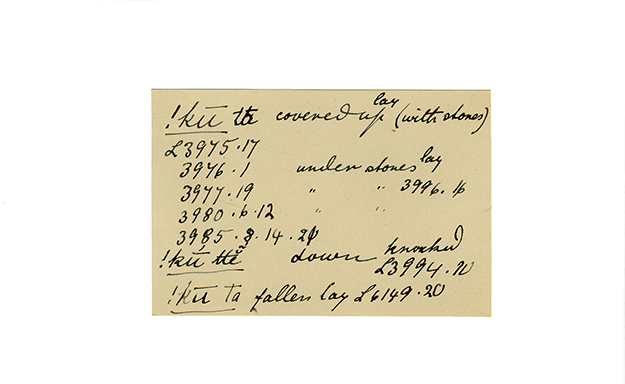 !kŭ tā covered up lay (with stones)
L3975.17
3976.1 under stones lay
3977.19 " " 3996.16
3980.6.12 " "
3985.8.14.21
!kŭ, ttĕ down knocked L3994.10
!kŭ ta fallen lay L6149.20